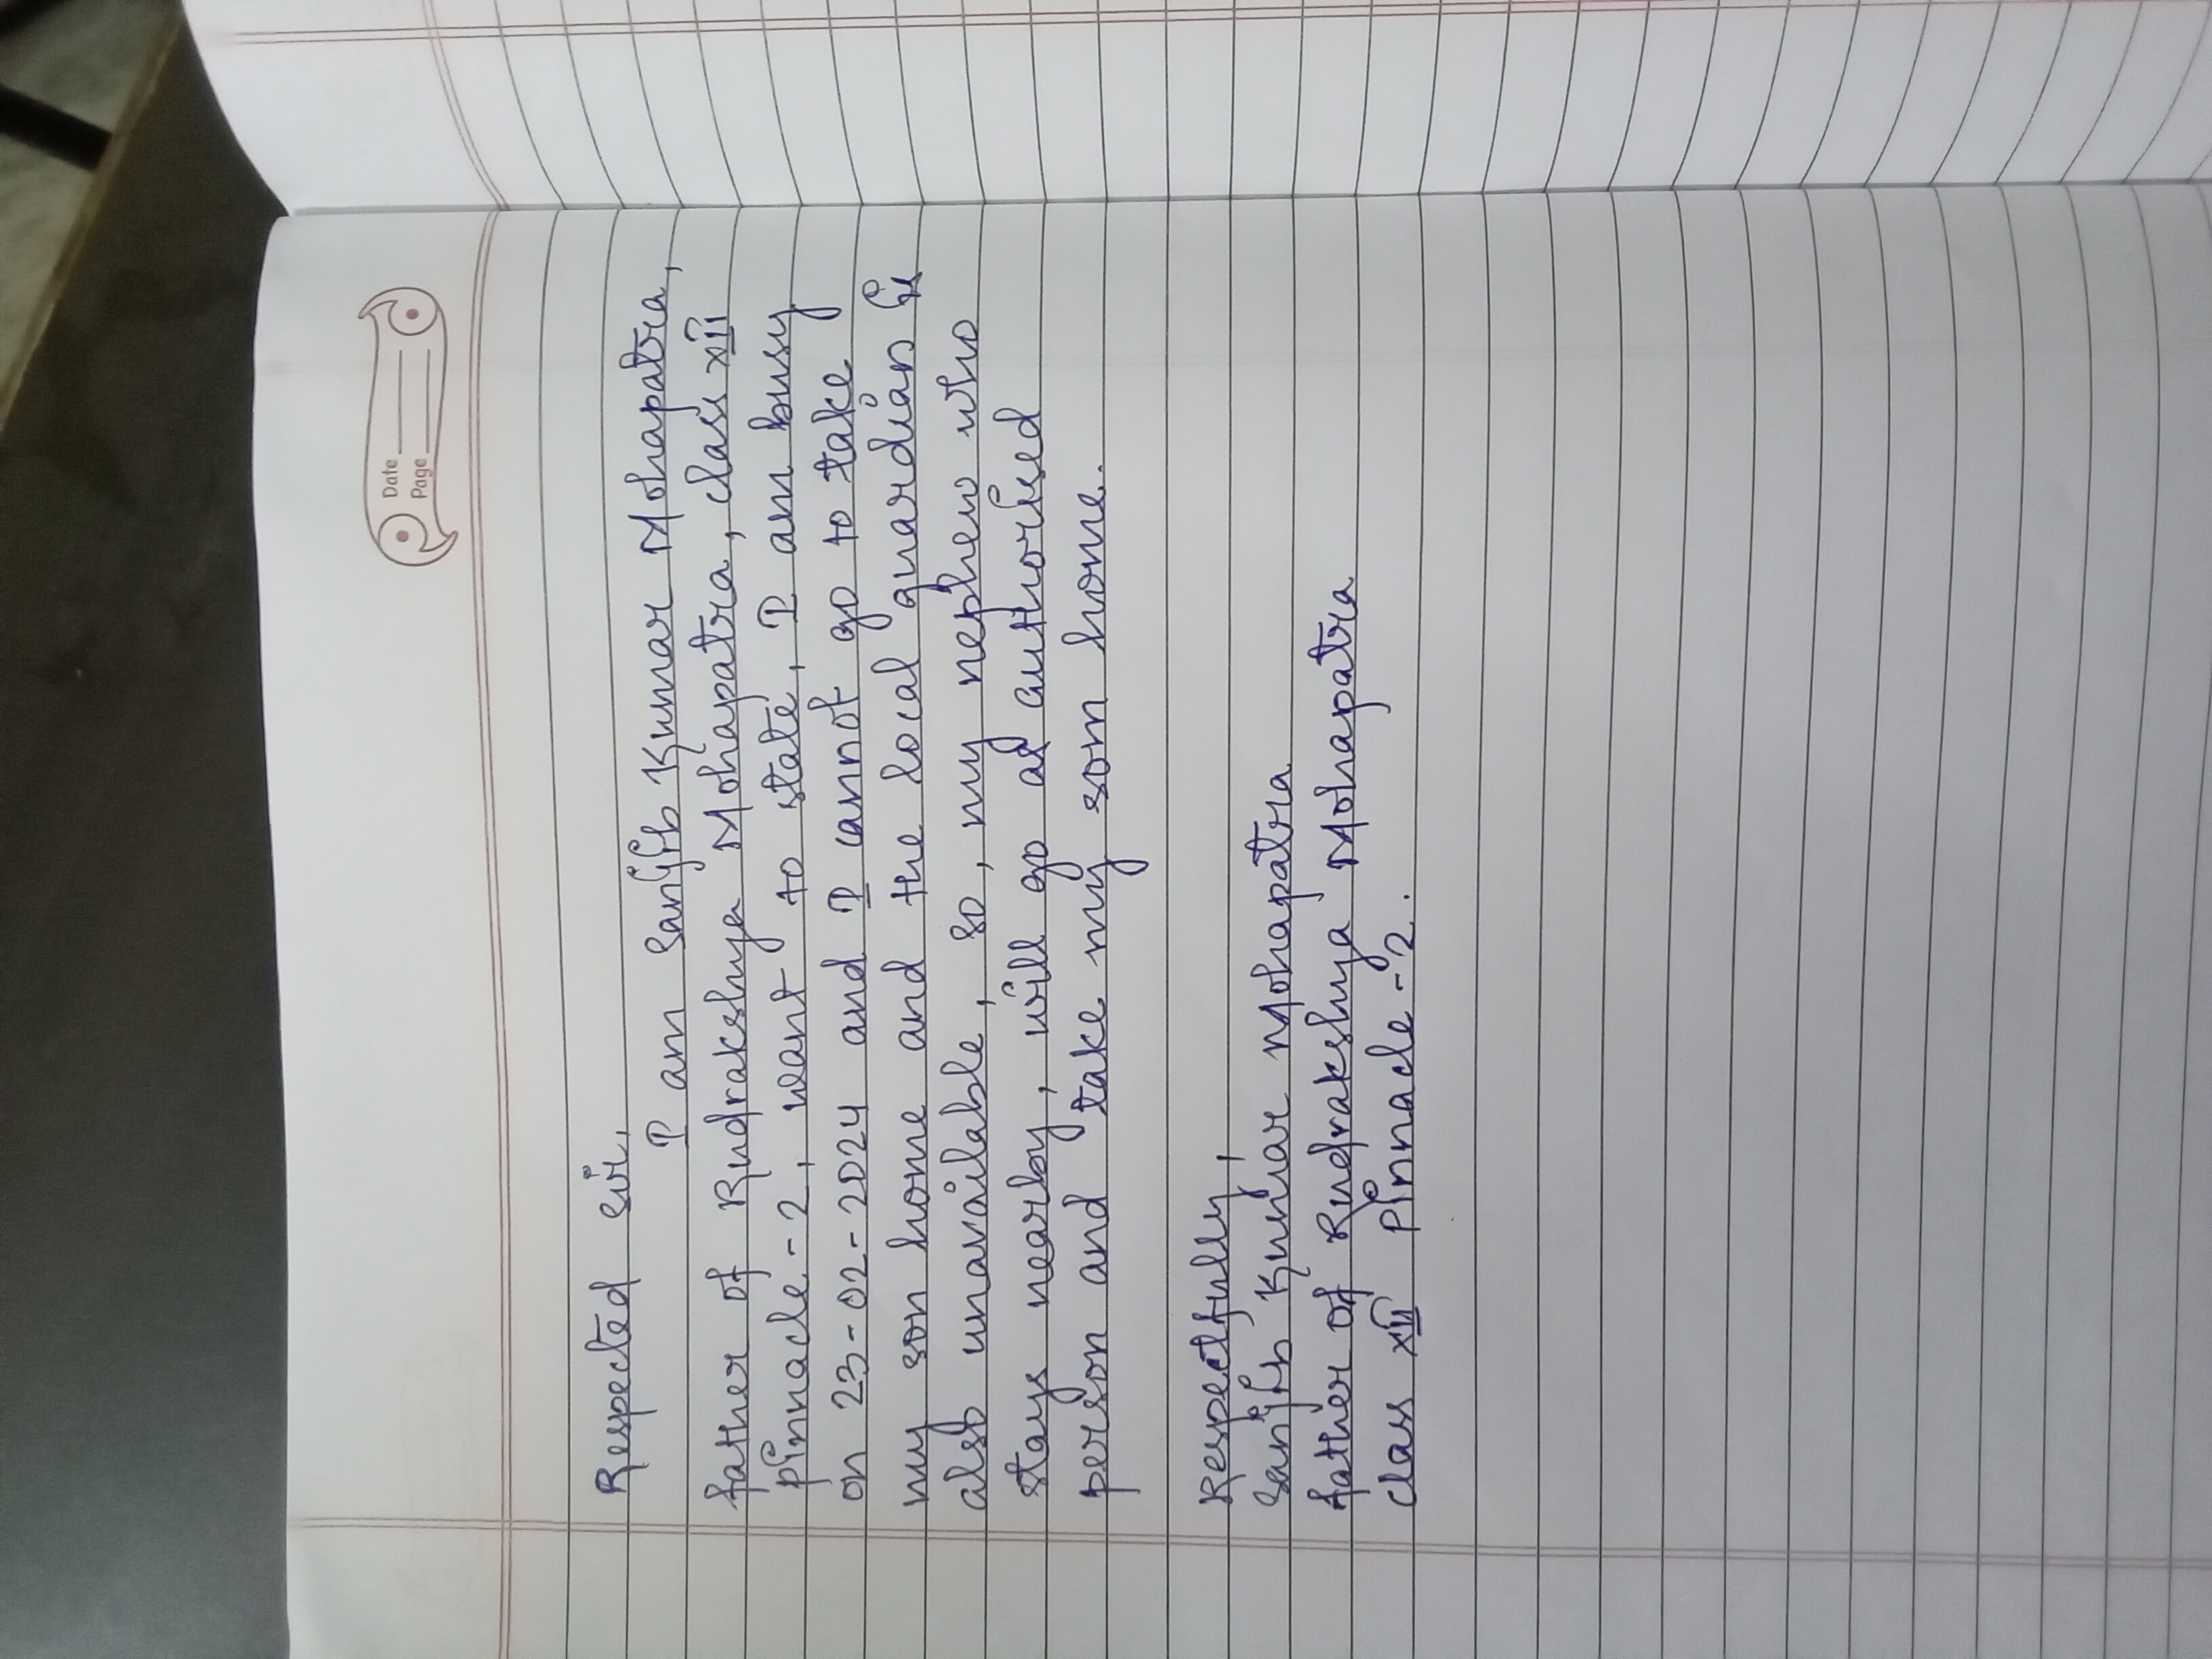 Date
Page
Respected sir,
I am Sanjib Kumar Mohapatra,
father of Rudrakshya Mohapatra, class XII
Pinnacle-2, want to state, I am busy
on 23-02-2024 and I cannot go to take
my son home and the local guardian is
also unavailable, so, my nephew who
stays nearby, will go as authorised
person and take my son home.
Respectfully,
Sanjib Kumar Mohapatra
father of Rudrakshya Mohapatra
class XII Pinnacle-2.